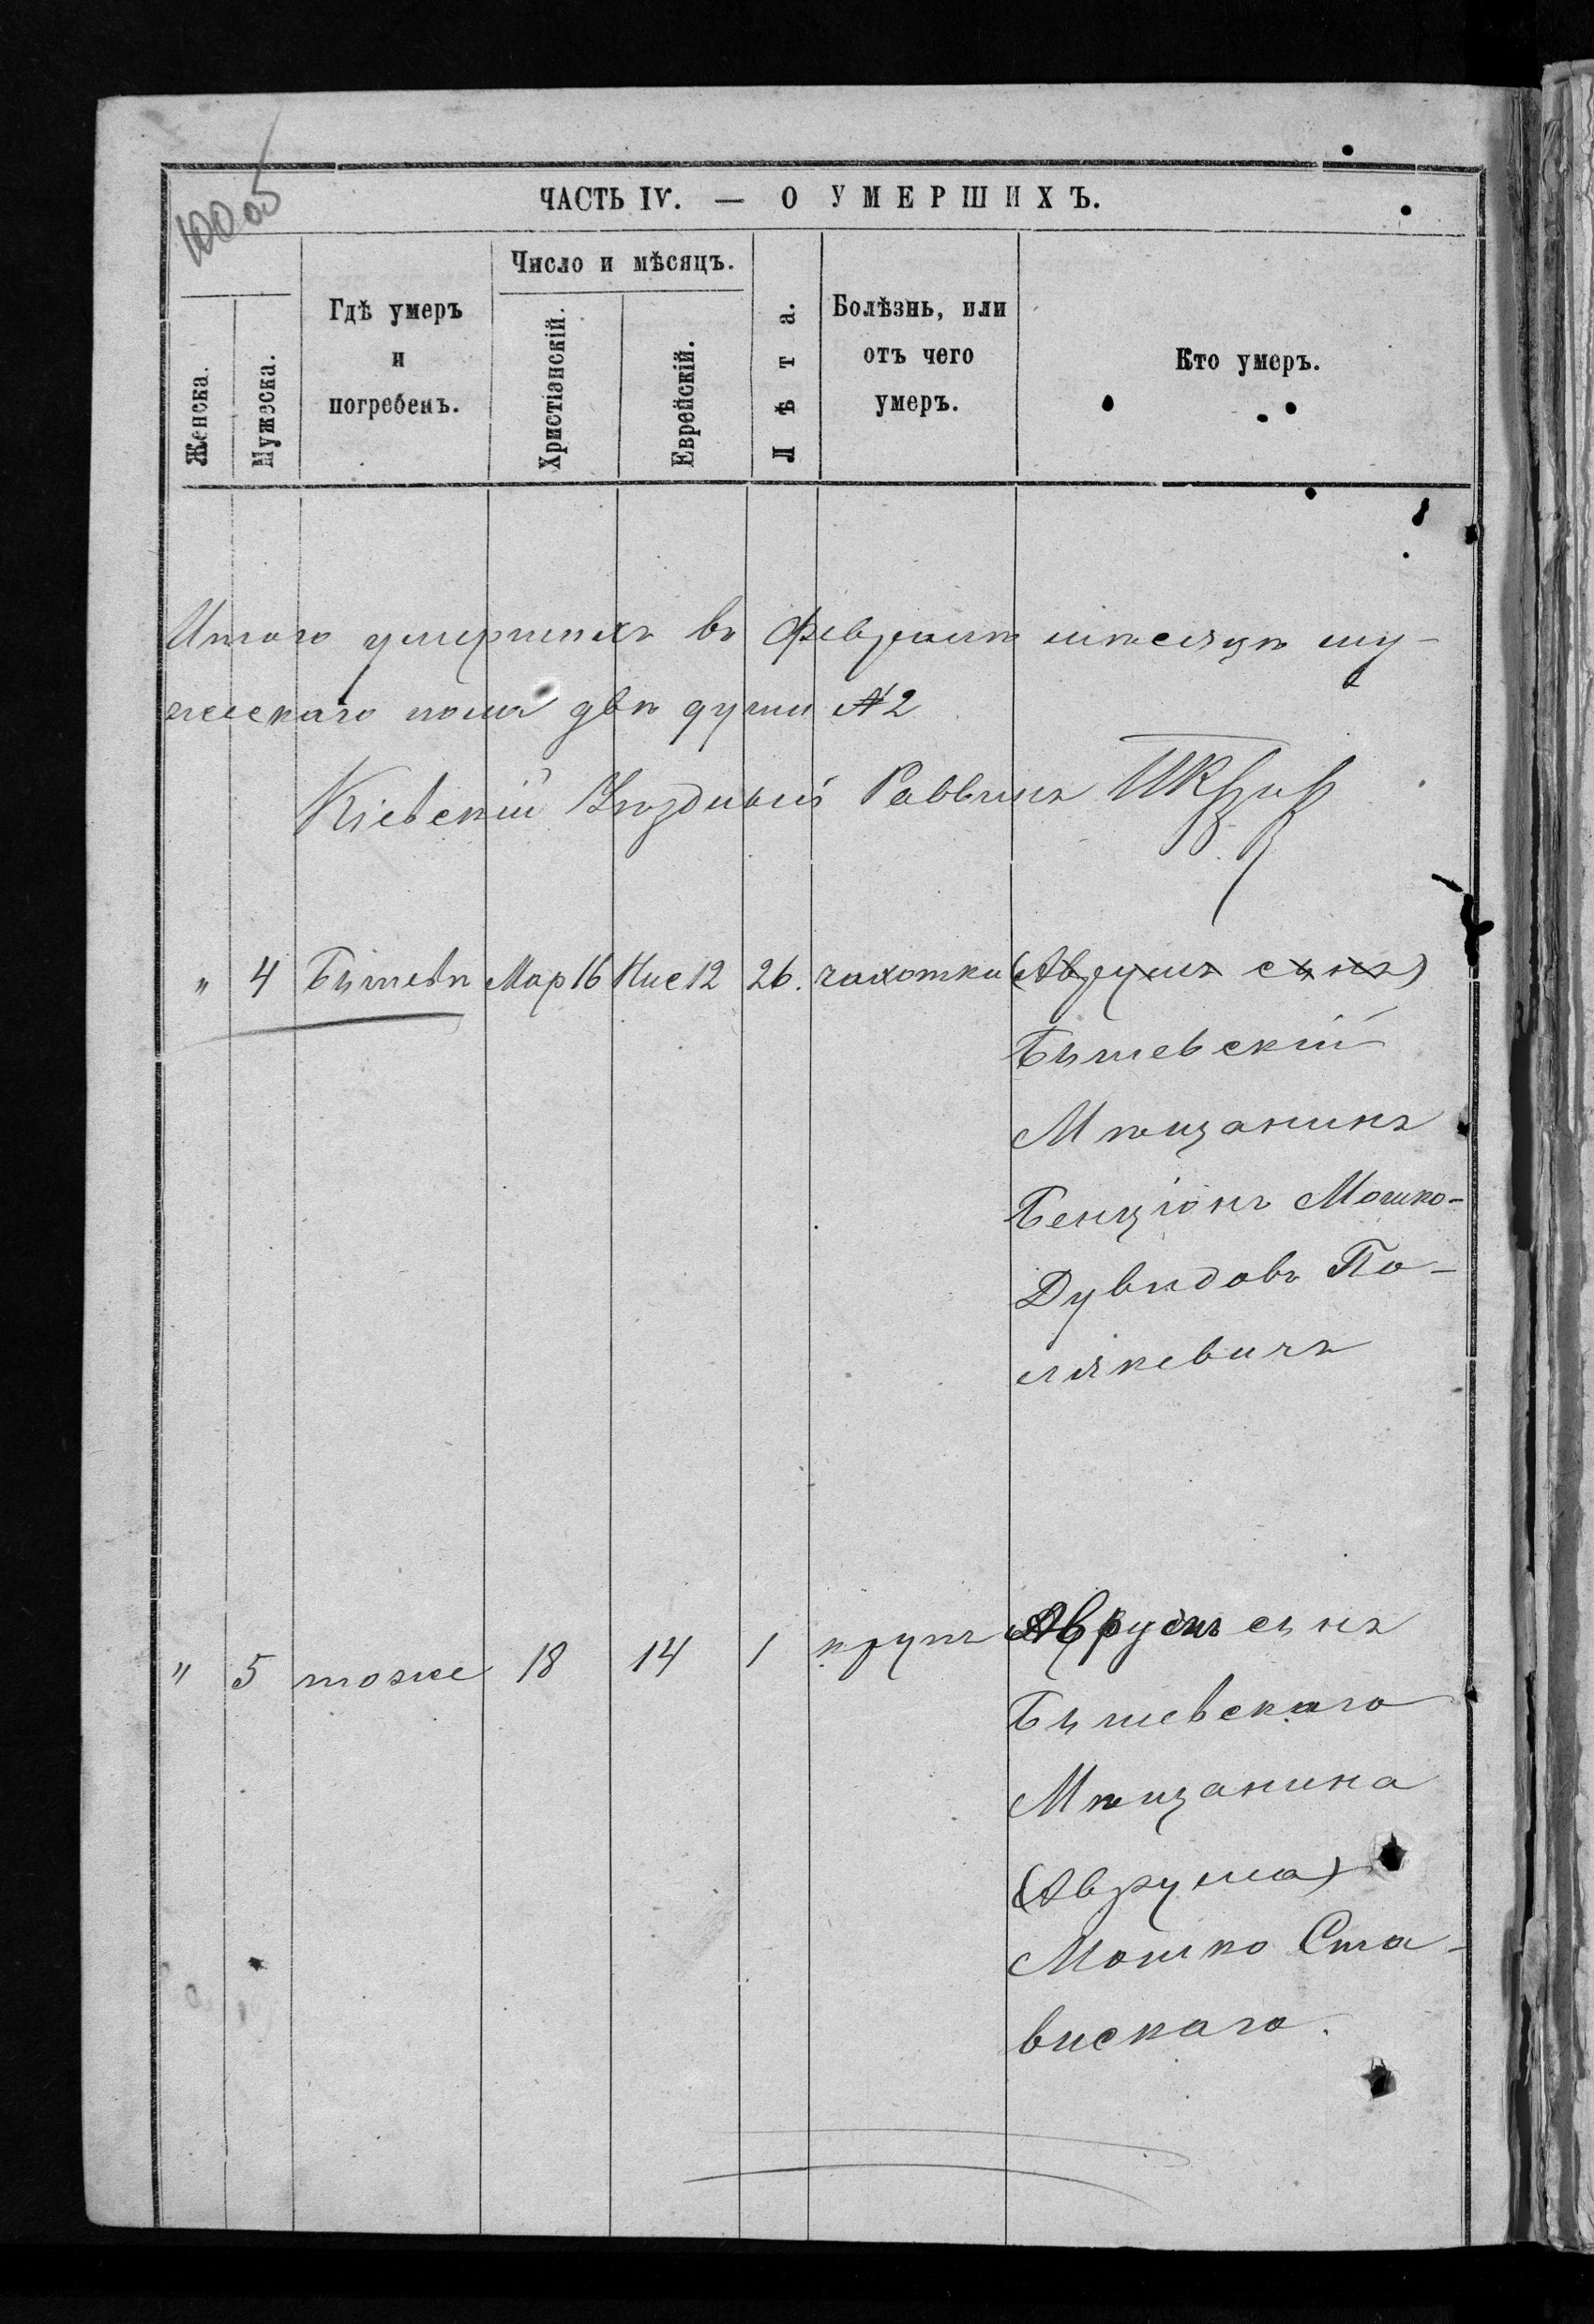 ЧАСТЬ IV. — О УМЕРШИХЪ.
Женска.
Мужеска.
Гдѣ умеръ
и
погребенъ.
Число и мѣсяцъ.
Христіанскій.
Еврейскій.
Лѣта.
Болѣзнь, или
отъ чего
умеръ.
Кто умеръ.
Итого умершихъ въ Февралѣ мѣсяцѣ му-
жескаго пола двѣ души №2
Кіевскій Уѣздный Раввинъ
" 4 Бышевѣ Мар 16 Нис 12 26. чахотки (Аврумъ сынъ)
Бышевскій
Мѣщанинъ
Бенціонъ Мошко-
Дувидовъ По-
лякевичъ
" 5 тоже 18 14 1 крупъ Аврумъ сынъ
Бышевскаго
Мѣщанина
(Аврума)
Мошко Ста-
вискаго.